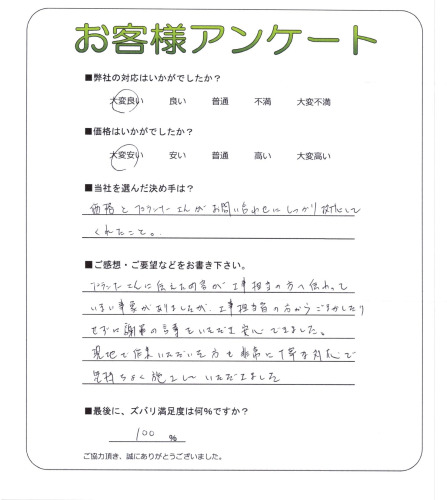 お客様アンケート
■弊社の対応はいかがでしたか？
大変良い 良い 普通 不満 大変不満
■価格はいかがでしたか？
大変安い 安い 普通 高い 大変高い
■当社を選んだ決め手は？
価格とプランナーさんがお問い合わせにしっかり対応して
くれたこと。
■ご感想・ご要望などをお書き下さい。
プランナーさんに伝えた内容が工事担当の方へ伝わって
いない事象がありましたが、工事担当者の方からごまかしたり
せずに謝罪の言葉をいただき安心できました。
現地で作業いただいた方も非常に丁寧な対応で
気持ちよく施工していただけました
■最後に、ズバリ満足度は何%ですか？
100 %
ご協力頂き、誠にありがとうございました。